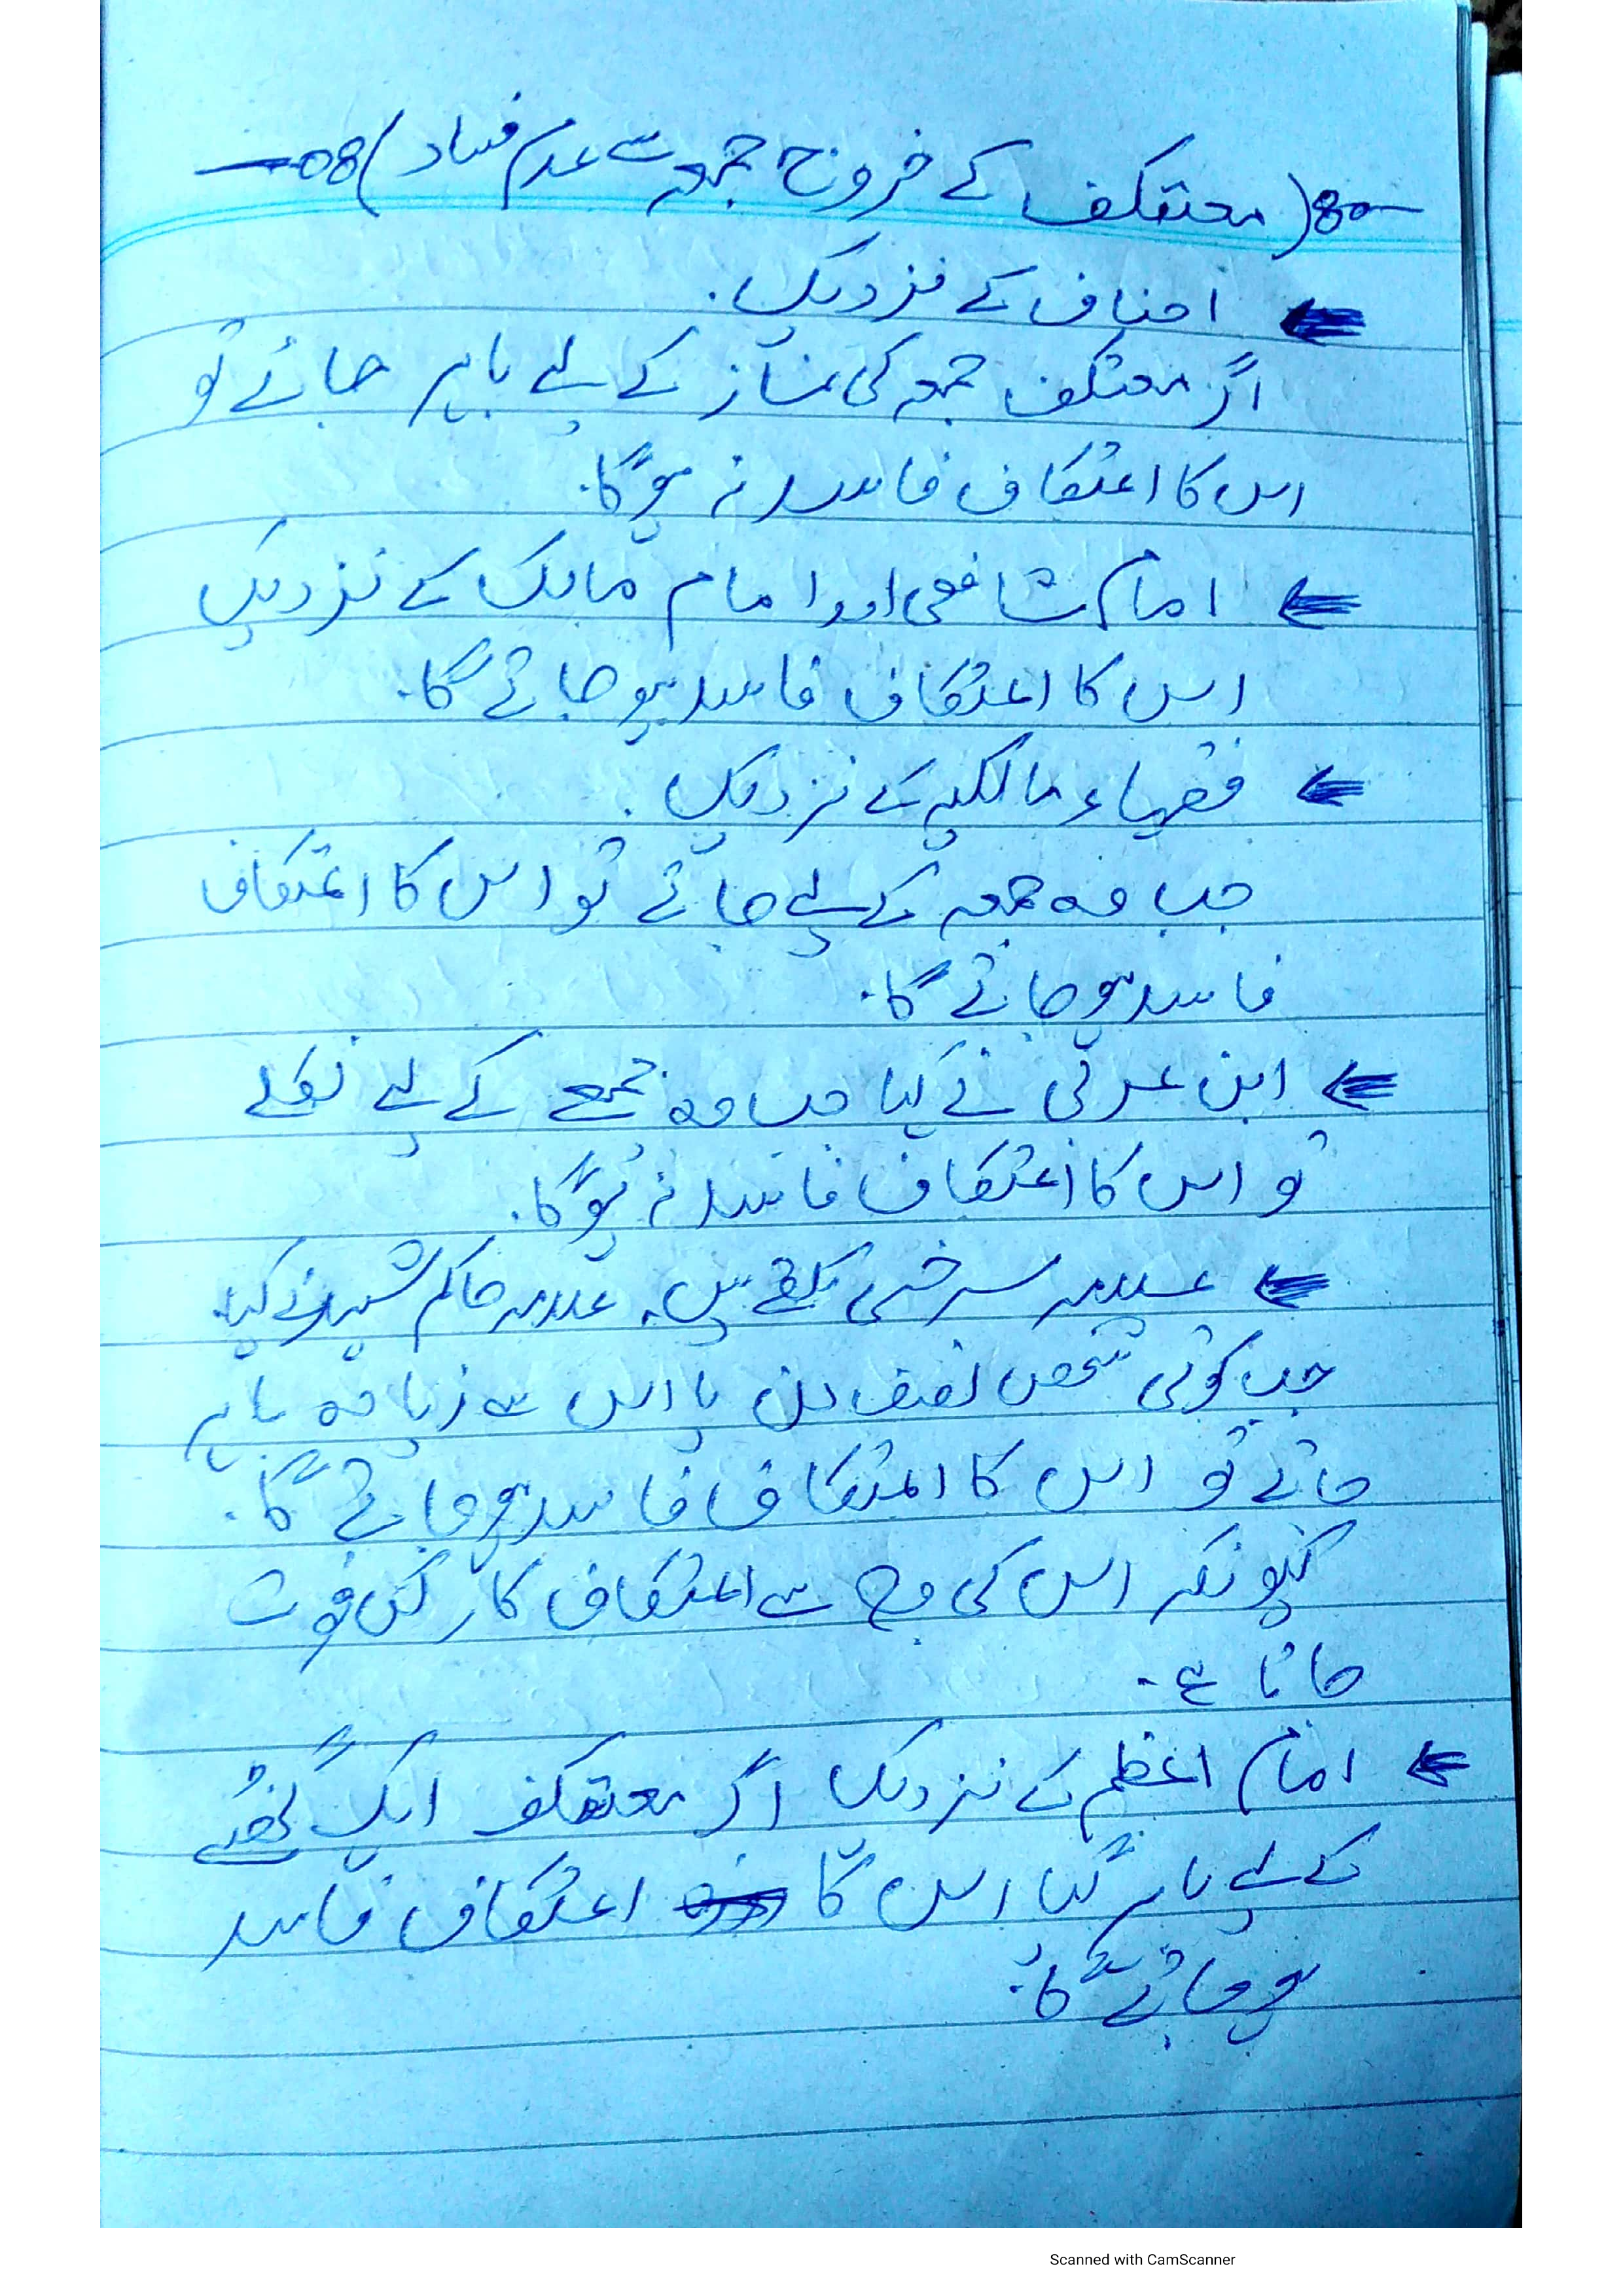 (معتکف کے خروج جمعہ سے عدم فساد)
احناف کے نزدیک.
اگر معتکف جمعہ کی نماز کے لیے باہر جائے تو
اس کا اعتکاف فاسد نہ ہوگا.
امام شافعی اور امام مالک کے نزدیک
اس کا اعتکاف فاسد ہو جائے گا.
فقہاء مالکیہ کے نزدیک.
جب وہ جمعہ کے لیے جائے تو اس کا اعتکاف
فاسد ہو جائے گا.
ابن عربی نے کہا جب وہ جمعے کے لیے نکلے
تو اس کا اعتکاف فاسد نہ ہوگا.
علامہ سرخسی لکھتے ہیں. علامہ حاکم شہید نے کہا.
جب کوئی شخص نصف دن یا اس سے زیادہ باہر
جائے تو اس کا اعتکاف فاسد ہو جائے گا.
کیونکہ اس کی وجہ سے اعتکاف کا رکن فوت
جاتا ہے.
امام اعظم کے نزدیک اگر معتکف ایک لحظے
کے لیے باہر گیا اس کا اعتکاف فاسد
ہو جائے گا.
Scanned with CamScanner